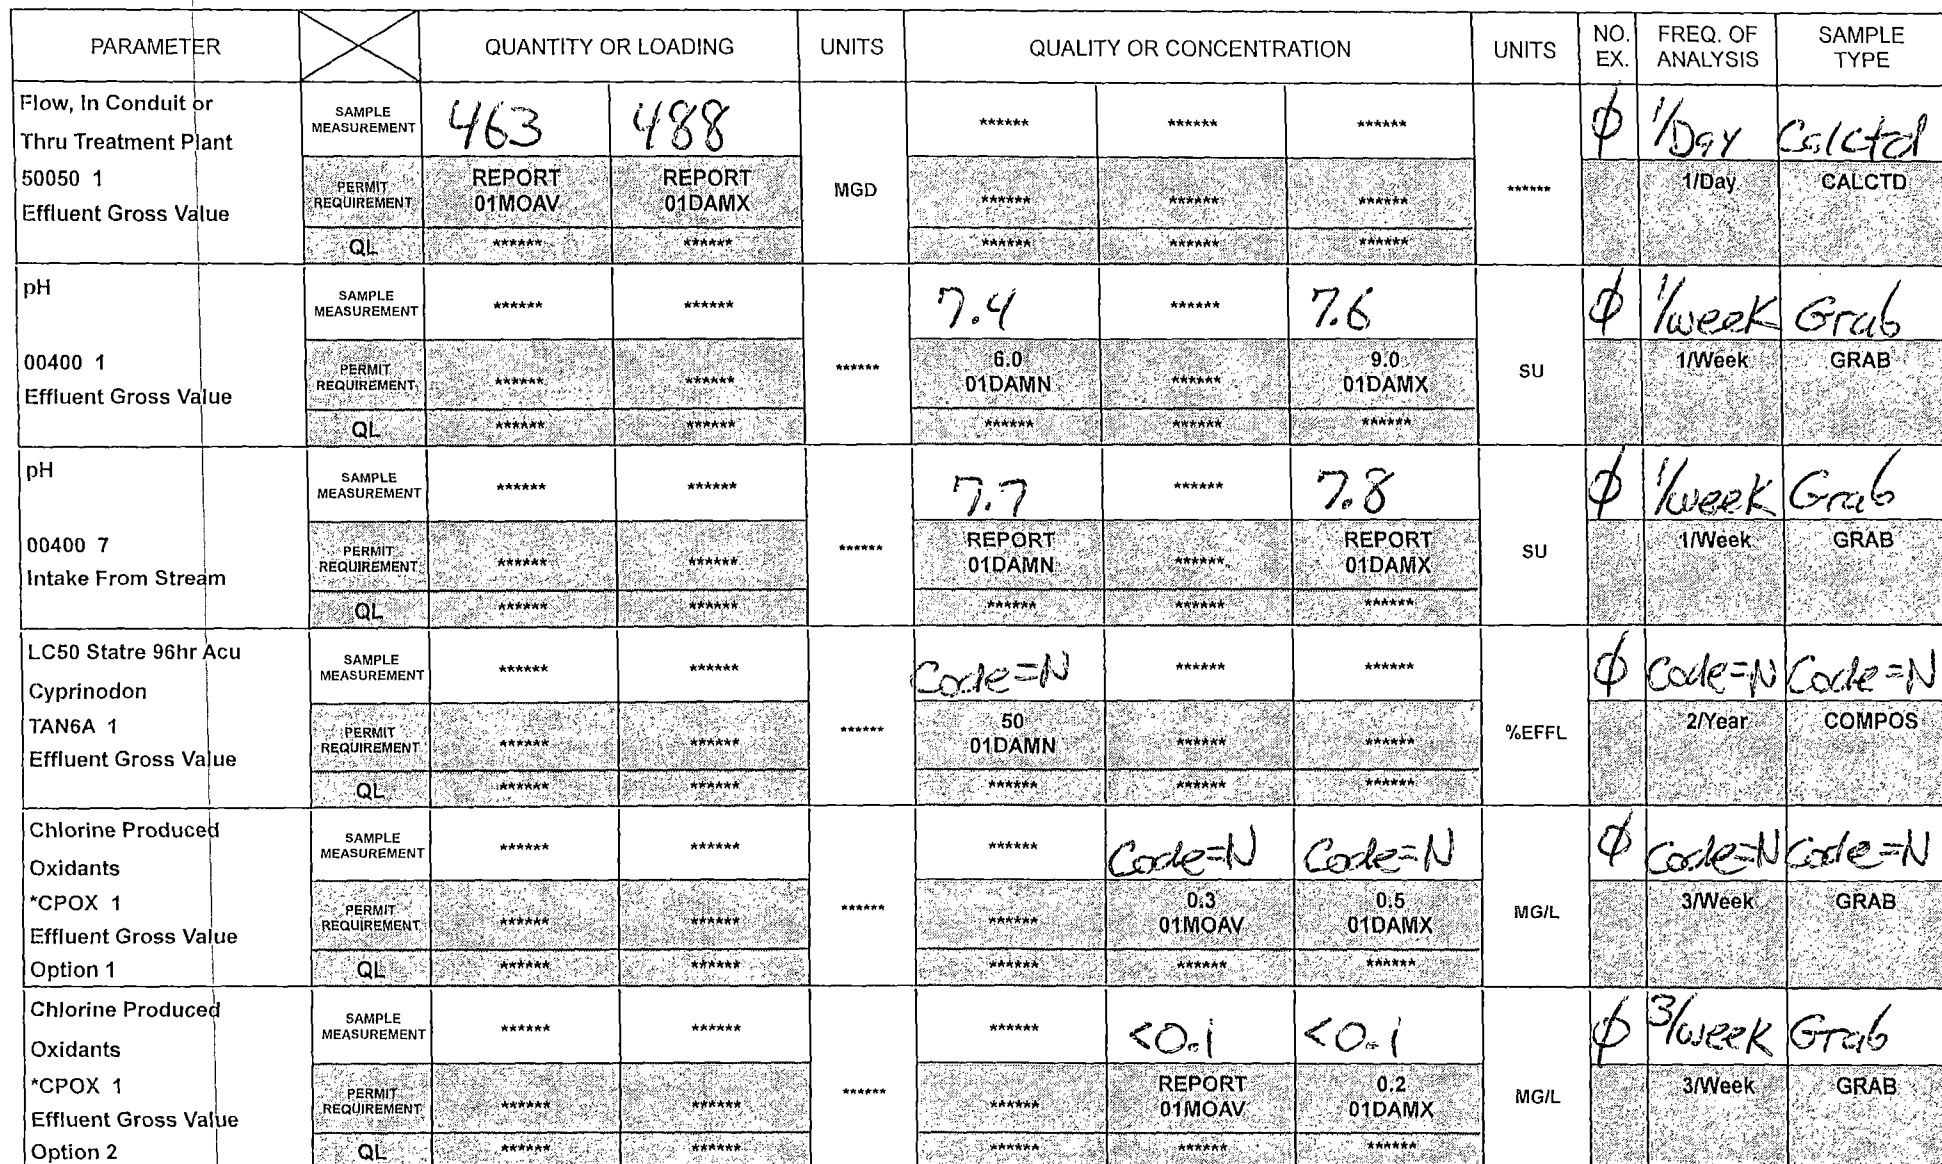 PARAMETER QUANTITY OR LOADING UNITS QUALITY OR CONCENTRATION UNITS NO. EX. FREQ. OF ANALYSIS SAMPLE TYPE
Flow, In Conduit or
Thru Treatment Plant
50050 1
Effluent Gross Value
SAMPLE MEASUREMENT 463 488 ****** ****** ****** φ 1/Day Calctd
PERMIT REQUIREMENT REPORT 01MOAV REPORT 01DAMX MGD ****** ****** ****** ****** 1/Day CALCTD
QL ****** ****** ****** ****** ******
pH
00400 1
Effluent Gross Value
SAMPLE MEASUREMENT ****** ****** 7.4 ****** 7.6 φ 1/week Grab
PERMIT REQUIREMENT ****** ****** ****** 6.0 01DAMN ****** 9.0 01DAMX SU 1/Week GRAB
QL ****** ****** ****** ****** ******
pH
00400 7
Intake From Stream
SAMPLE MEASUREMENT ****** ****** 7.7 ****** 7.8 φ 1/week Grab
PERMIT REQUIREMENT ****** ****** ****** REPORT 01DAMN ****** REPORT 01DAMX SU 1/Week GRAB
QL ****** ****** ****** ****** ******
LC50 Statre 96hr Acu
Cyprinodon
TAN6A 1
Effluent Gross Value
SAMPLE MEASUREMENT ****** ****** Code=N ****** ****** φ Code=N Code=N
PERMIT REQUIREMENT ****** ****** ****** 50 01DAMN ****** ****** %EFFL 2/Year COMPOS
QL ****** ****** ****** ****** ******
Chlorine Produced
Oxidants
*CPOX 1
Effluent Gross Value
Option 1
SAMPLE MEASUREMENT ****** ****** ****** Code=N Code=N φ Code=N Code=N
PERMIT REQUIREMENT ****** ****** ****** ****** 0.3 01MOAV 0.5 01DAMX MG/L 3/Week GRAB
QL ****** ****** ****** ****** ******
Chlorine Produced
Oxidants
*CPOX 1
Effluent Gross Value
Option 2
SAMPLE MEASUREMENT ****** ****** ****** <0.1 <0.1 φ 3/week Grab
PERMIT REQUIREMENT ****** ****** ****** ****** REPORT 01MOAV 0.2 01DAMX MG/L 3/Week GRAB
QL ****** ****** ****** ****** ******